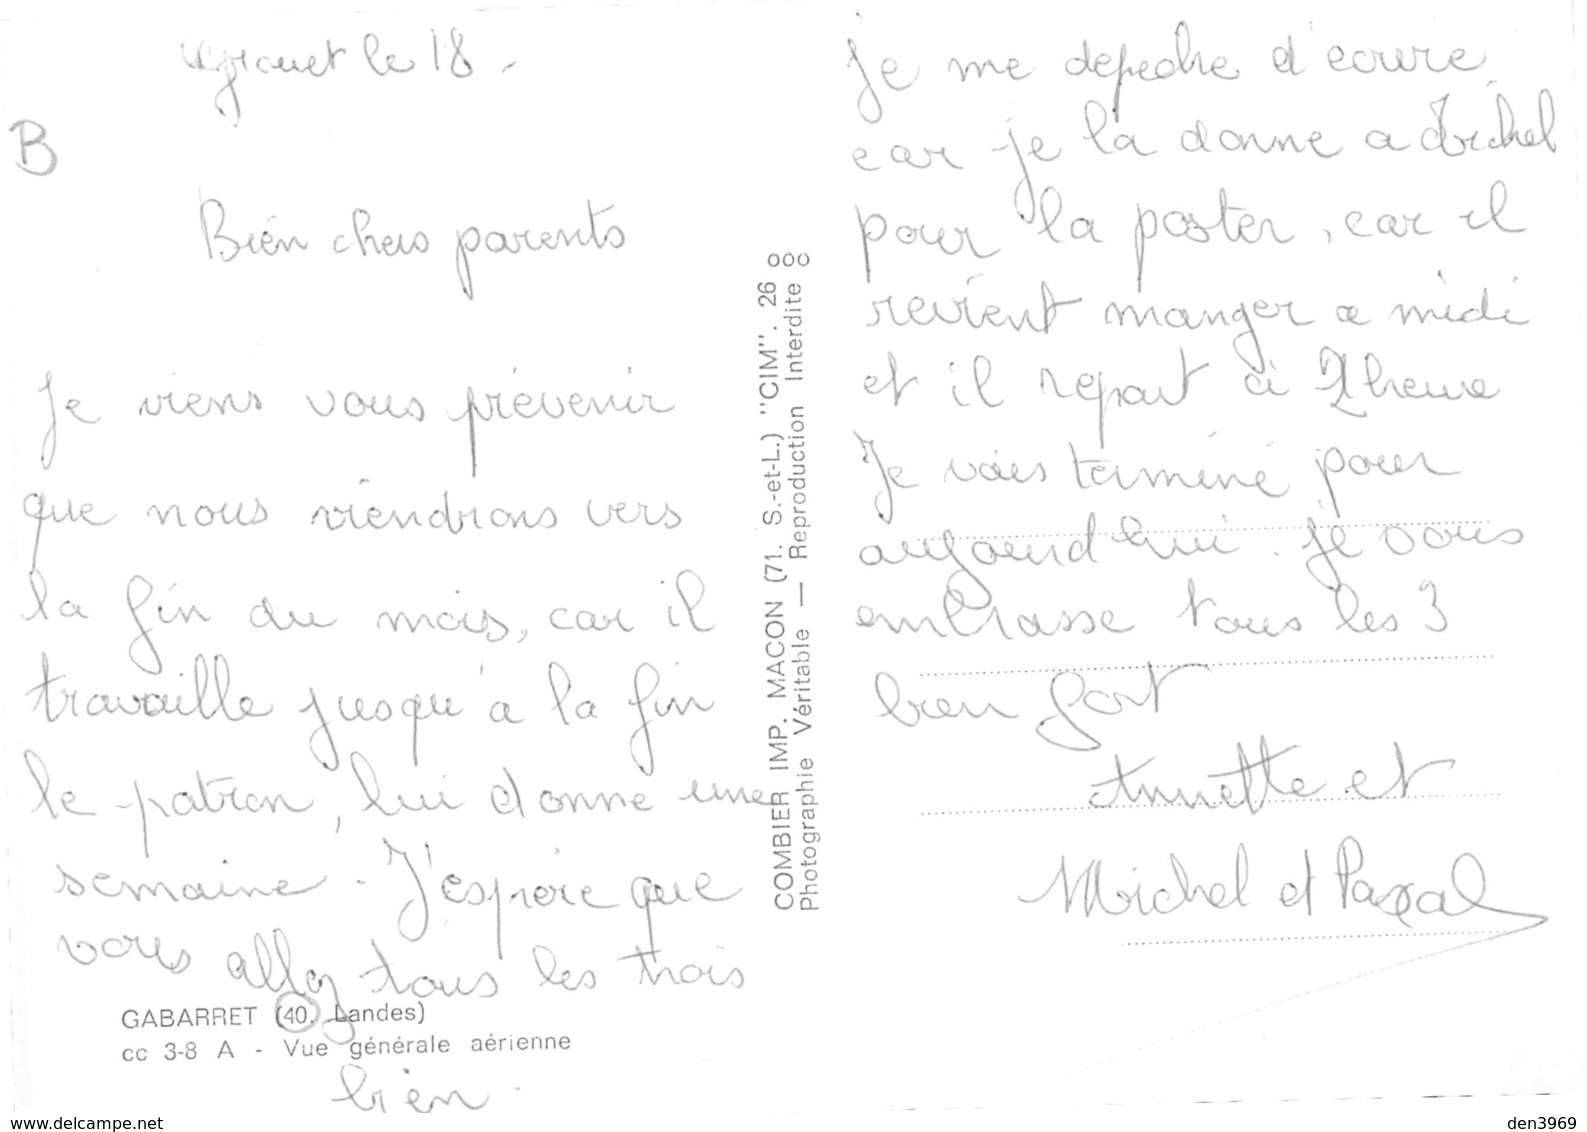 le 18
B
Bien chers parents
Je viens vous prévenir
que nous viendrons vers
la fin du mois, car il
travaille jusqu'à la fin
le patron, lui donne une
semaine. J'espère que
vous allez tous les trois
bien.
GABARRET (40. Landes)
cc 3-8 A - Vue générale aérienne
COMBIER IMP. MACON (71. S.-et-L.) "CIM". 26
Photographie Véritable — Reproduction Interdite
Je me depeche d'ecrire
car je la donne a Michel
pour la poster, car il
revient manger a midi
et il repart à 2 heure
Je vais terminé pour
aujourd'hui. Je vous
embrasse tous les 3
bien fort
Annette et
Michel et Pascal
www.delcampe.net
den3969